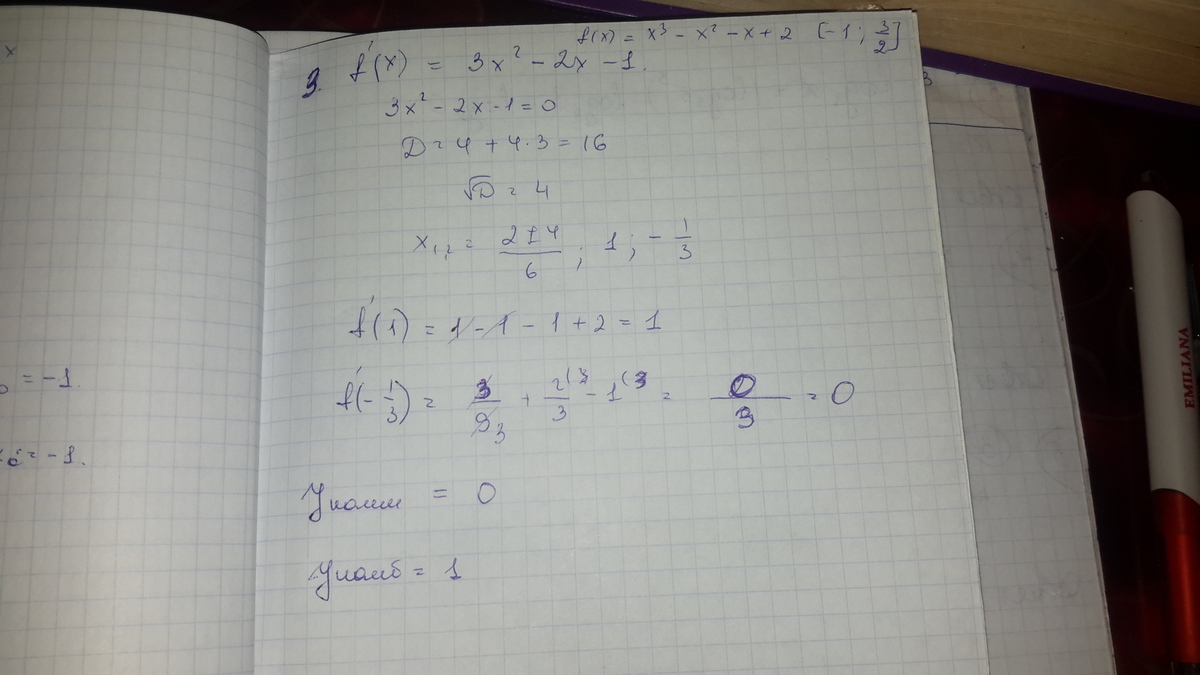 x
f(x) = x³ - x² - x + 2 [-1; 3/2]
3. f'(x) = 3x² - 2x - 1.
3x² - 2x - 1 = 0
D = 4 + 4·3 = 16
√D = 4
x₁,₂ = (2 ± 4)/6 ; 1 ; - 1/3
f'(1) = 1 - 1 - 1 + 2 = 1
= -1.
f'(- 1/3) = 3/9 3 + 2(3/3 - 1(3 = 0/3 = 0
= -1.
Унаим = 0
Унаиб = 1
EMILIANA